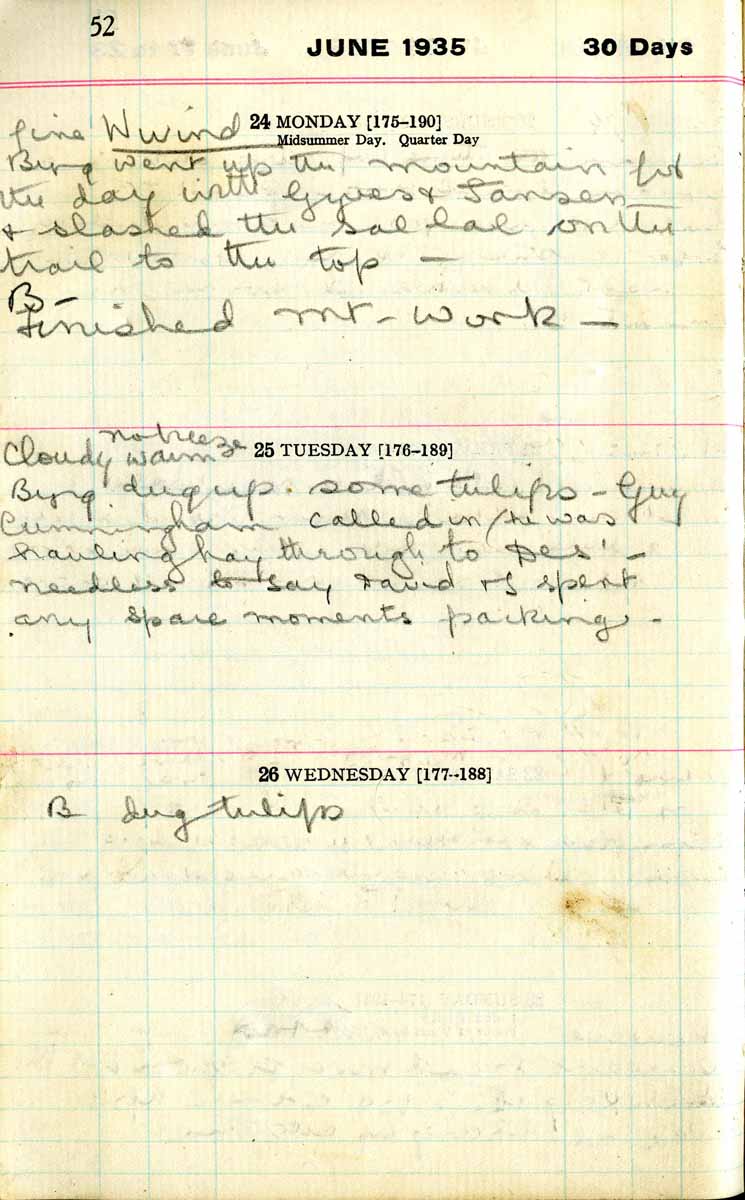 52
JUNE 1935 30 Days
24 MONDAY [175–190]
Midsummer Day. Quarter Day
fine W wind
Byng went up the mountain for
the day with Gyves & Jansen
& slashed the sal lal on the
trail to the top —
B –
Finished mt – work —
25 TUESDAY [176–189]
no breeze
Cloudy warm
Byng dug up some tulips – Guy
Cunningham called in / he was
hauling hay through to Des' –
needless to say David & I spent
any spare moments packing –
26 WEDNESDAY [177--188]
B dug tulips